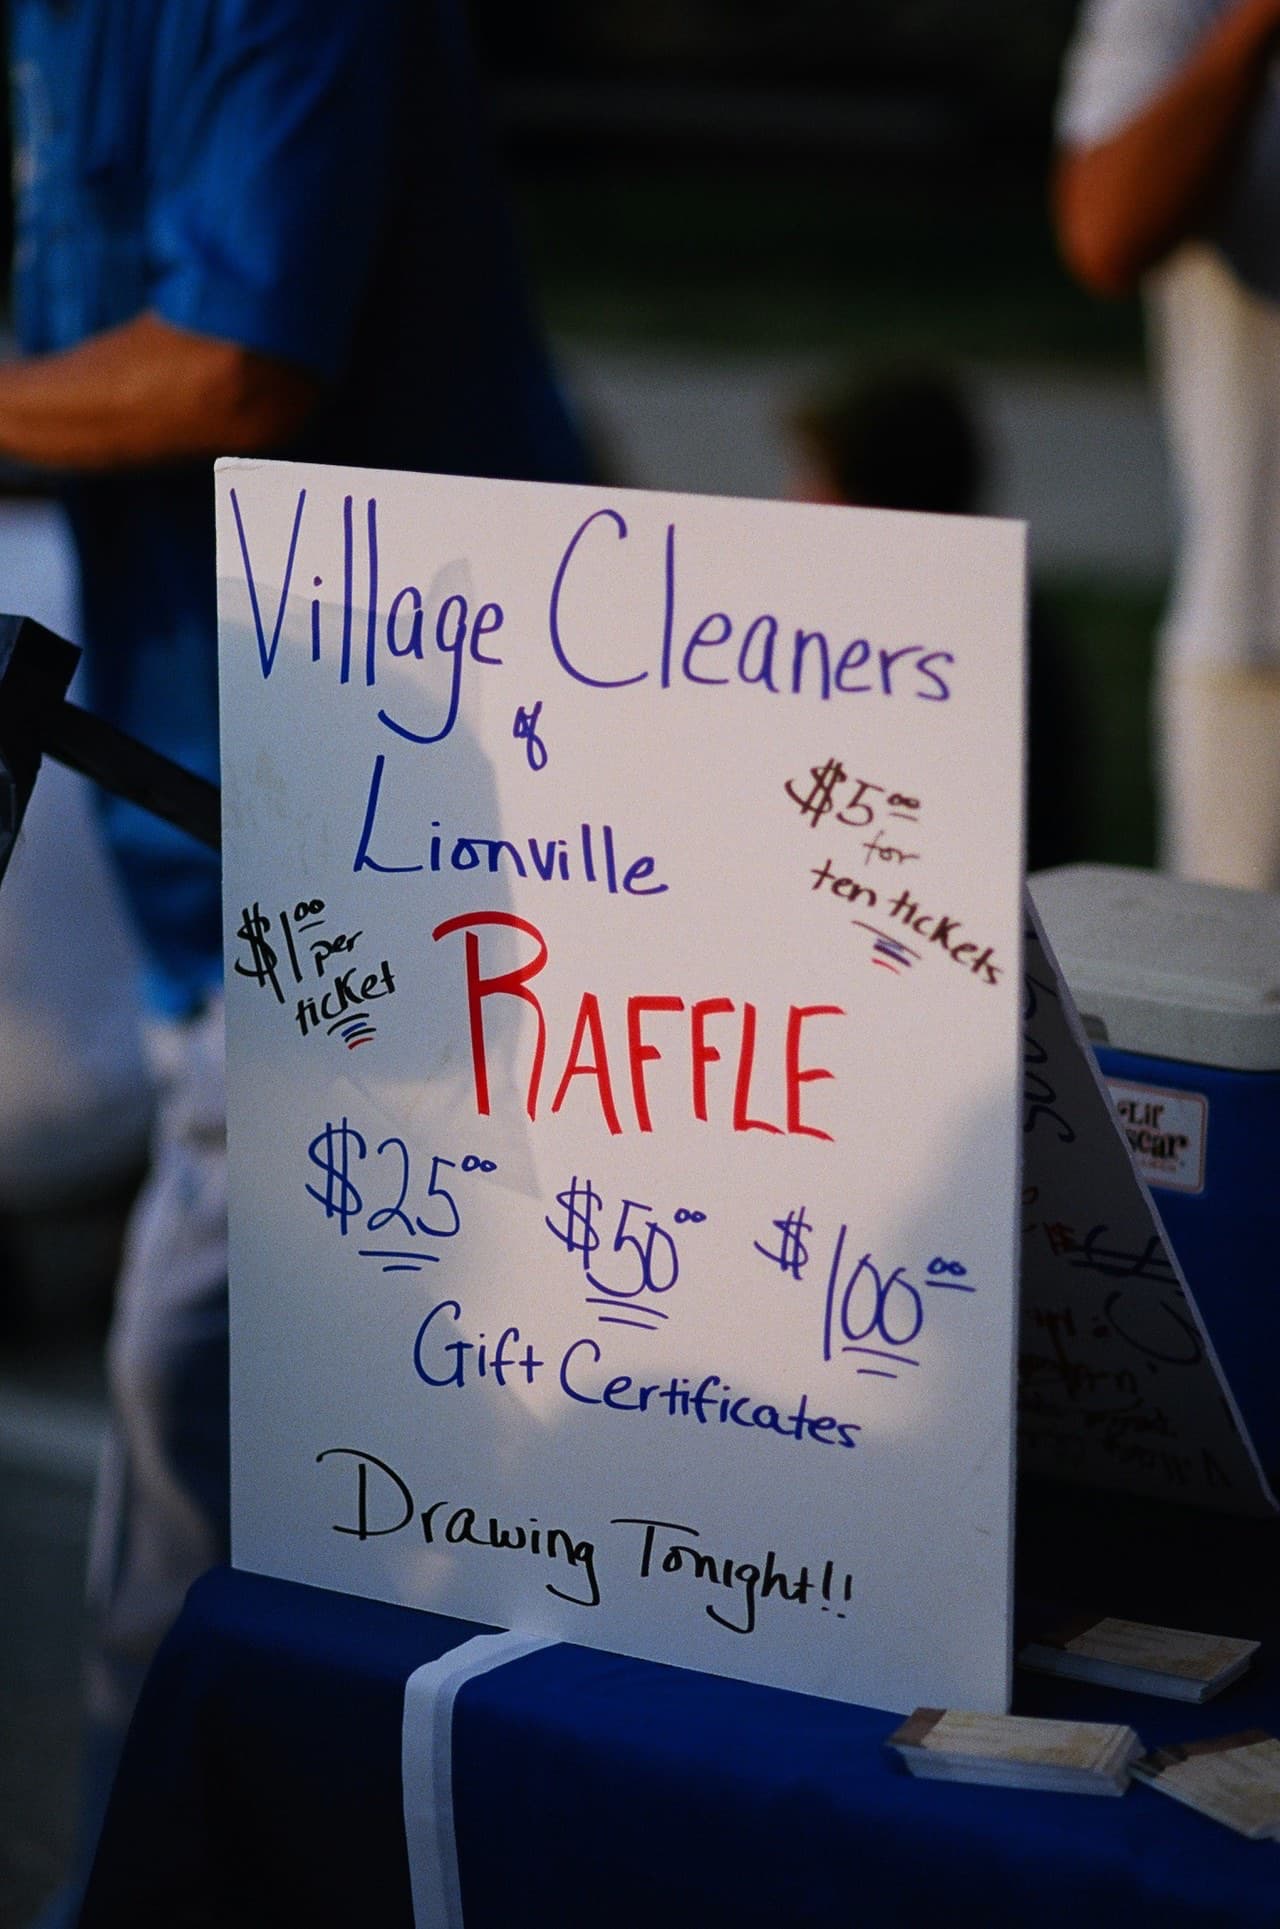 Village Cleaners
of
Lionville
$5.00
for
ten tickets
$1.00
per
ticket
RAFFLE
$25.00 $50.00 $100.00
Gift Certificates
Drawing Tonight!!
Lil'